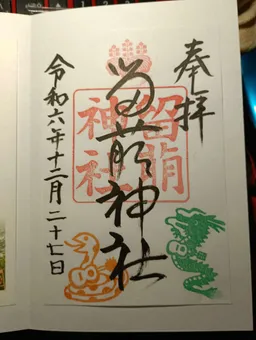 奉拝
留萌神社
留萌神社
令和六年十二月二十七日